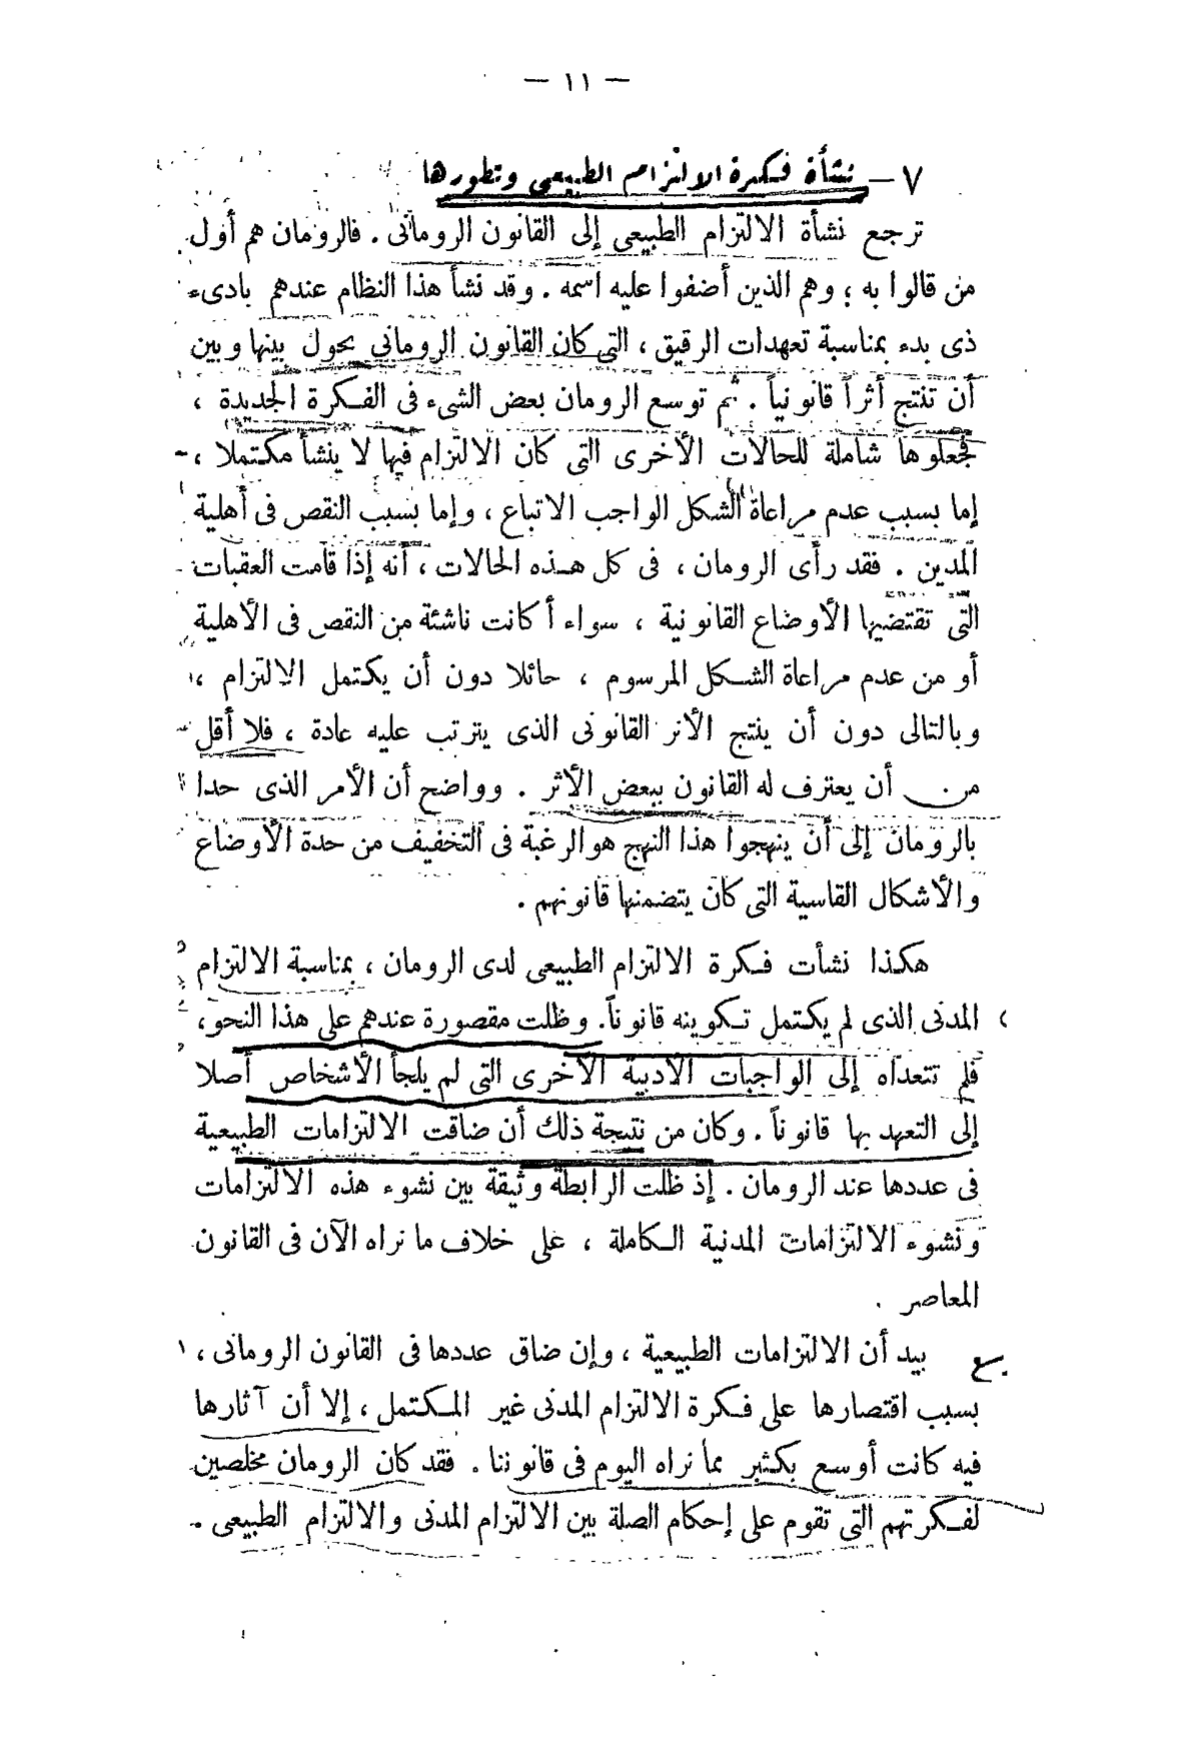 — ١١ —
٧ — نشأة فكرة الالتزام الطبيعى وتطورها
ترجع نشأة الالتزام الطبيعى إلى القانون الرومانى . فالرومان هم أول
من قالوا به ؛ وهم الذين أضفوا عليه اسمه . وقد نشأ هذا النظام عندهم بادىء
ذى بدء بمناسبة تعهدات الرقيق ، التى كان القانون الرومانى يحول بينها وبين
أن تنتج أثراً قانونياً . ثم توسع الرومان بعض الشىء فى الفكرة الجديدة ،
فجعلوها شاملة للحالات الأخرى التى كان الالتزام فيها لا ينشأ مكتملا ،
إما بسبب عدم مراعاة الشكل الواجب الاتباع ، وإما بسبب النقص فى أهلية
المدين . فقد رأى الرومان ، فى كل هذه الحالات ، أنه إذا قامت العقبات
التى تقتضيها الأوضاع القانونية ، سواء أكانت ناشئة من النقص فى الأهلية
أو من عدم مراعاة الشكل المرسوم ، حائلا دون أن يكتمل الالتزام ،
وبالتالى دون أن ينتج الأثر القانونى الذى يترتب عليه عادة ، فلا أقل
من أن يعترف له القانون ببعض الأثر . وواضح أن الأمر الذى حدا
بالرومان إلى أن ينهجوا هذا النهج هو الرغبة فى التخفيف من حدة الأوضاع
والأشكال القاسية التى كان يتضمنها قانونهم .
هكذا نشأت فكرة الالتزام الطبيعى لدى الرومان ، بمناسبة الالتزام
المدنى الذى لم يكتمل تكوينه قانوناً . وظلت مقصورة عندهم على هذا النحو ،
فلم تتعداه إلى الواجبات الأدبية الأخرى التى لم يلجأ الأشخاص أصلا
إلى التعهد بها قانوناً . وكان من نتيجة ذلك أن ضاقت الالتزامات الطبيعية
فى عددها عند الرومان . إذ ظلت الرابطة وثيقة بين نشوء هذه الالتزامات
ونشوء الالتزامات المدنية الكاملة ، على خلاف ما نراه الآن فى القانون
المعاصر .
بيد أن الالتزامات الطبيعية ، وإن ضاق عددها فى القانون الرومانى ،
بسبب اقتصارها على فكرة الالتزام المدنى غير المكتمل ، إلا أن آثارها
فيه كانت أوسع بكثير مما نراه اليوم فى قانوننا . فقد كان الرومان مخلصين
لفكرتهم التى تقوم على إحكام الصلة بين الالتزام المدنى والالتزام الطبيعى .